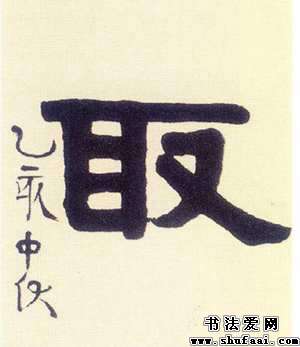 取
乙亥中伏
书法爱网
www.shufaai.com